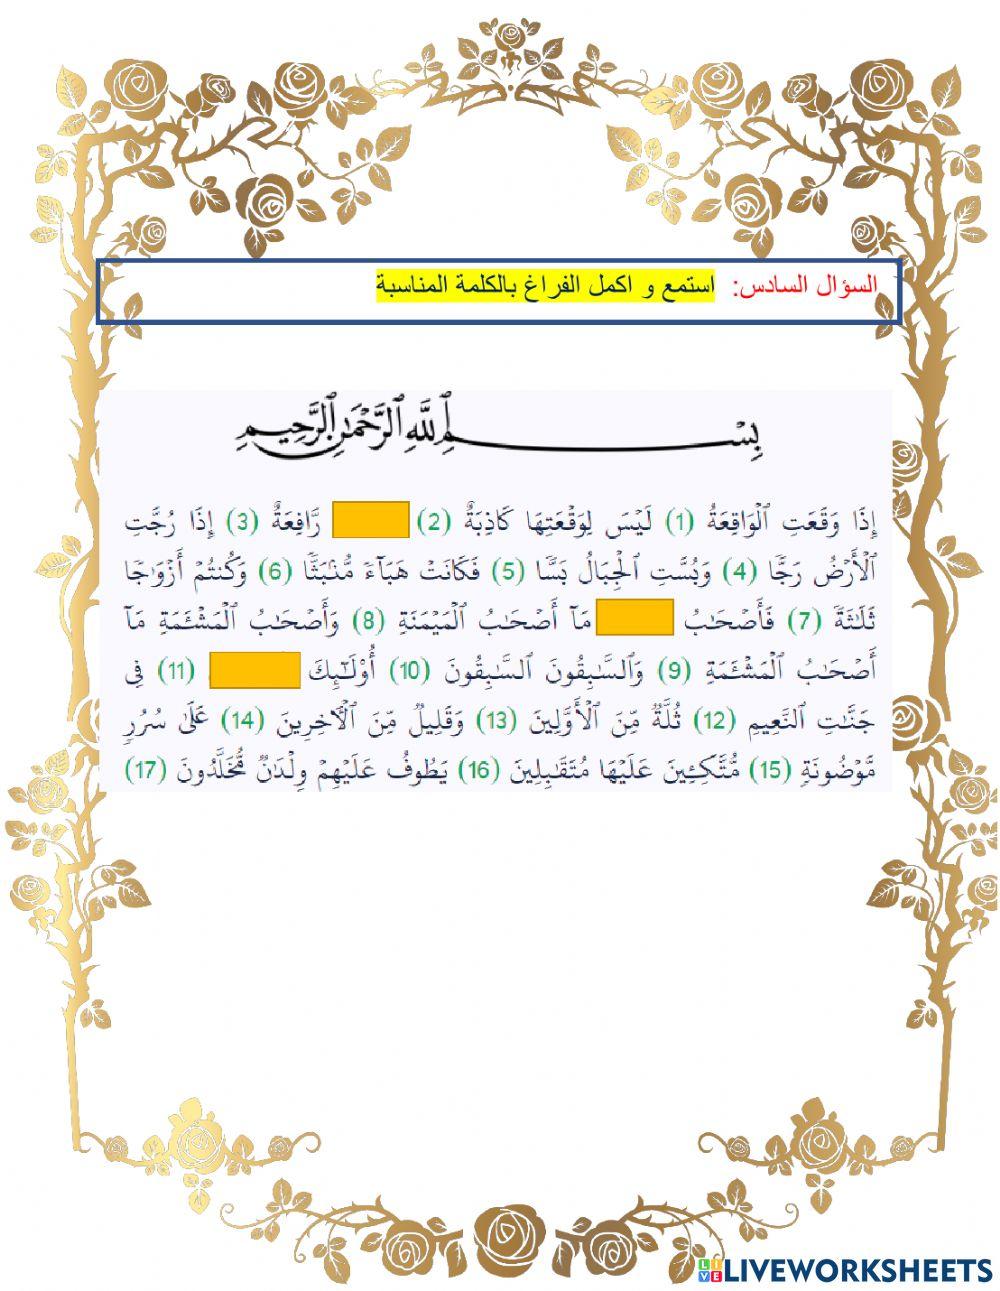 السؤال السادس: استمع و اكمل الفراغ بالكلمة المناسبة
بِسْمِ ٱللَّهِ ٱلرَّحْمَٰنِ ٱلرَّحِيمِ
إِذَا وَقَعَتِ ٱلْوَاقِعَةُ (1) لَيْسَ لِوَقْعَتِهَا كَاذِبَةٌ (2) رَّافِعَةٌ (3) إِذَا رُجَّتِ
ٱلْأَرْضُ رَجًّا (4) وَبُسَّتِ ٱلْجِبَالُ بَسًّا (5) فَكَانَتْ هَبَآءً مُّنۢبَثًّا (6) وَكُنتُمْ أَزْوَٰجًا
ثَلَٰثَةً (7) فَأَصْحَٰبُ مَآ أَصْحَٰبُ ٱلْمَيْمَنَةِ (8) وَأَصْحَٰبُ ٱلْمَشْـَٔمَةِ مَآ
أَصْحَٰبُ ٱلْمَشْـَٔمَةِ (9) وَٱلسَّٰبِقُونَ ٱلسَّٰبِقُونَ (10) أُوْلَٰٓئِكَ (11) فِى
جَنَّٰتِ ٱلنَّعِيمِ (12) ثُلَّةٌ مِّنَ ٱلْأَوَّلِينَ (13) وَقَلِيلٌ مِّنَ ٱلْءَاخِرِينَ (14) عَلَىٰ سُرُرٍ
مَّوْضُونَةٍ (15) مُّتَّكِـِٔينَ عَلَيْهَا مُتَقَٰبِلِينَ (16) يَطُوفُ عَلَيْهِمْ وِلْدَٰنٌ مُّخَلَّدُونَ (17)
LIVE LIVEWORKSHEETS